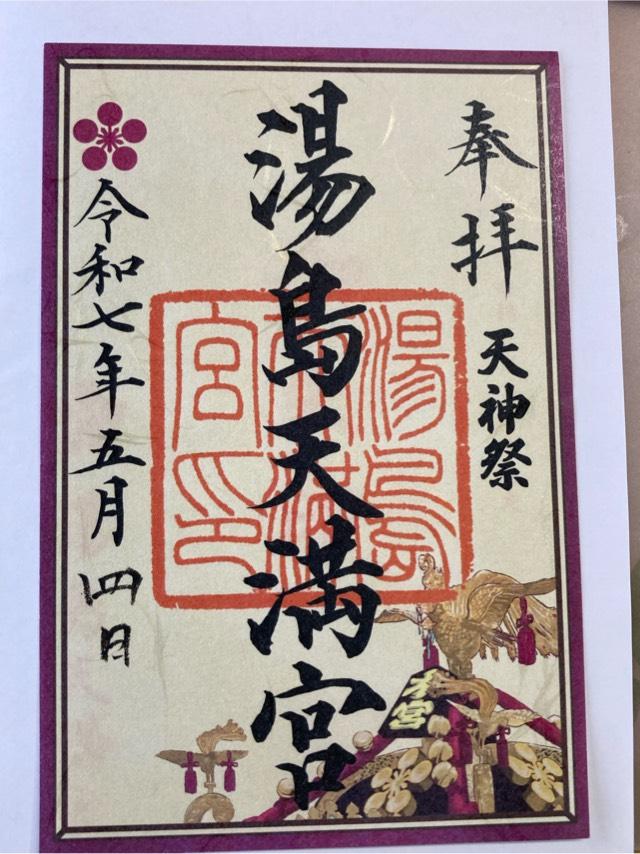 奉拝
天神祭
湯島天満宮
湯島天満宮印
令和七年五月四日